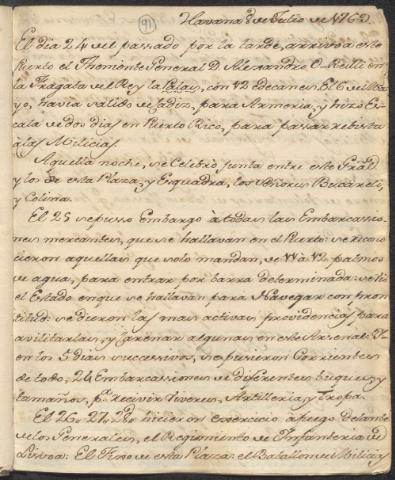 91
Havana 8 de Julio de 1769
El dia 24 del passado por la tarde, arrivo a este
Puerto el Thenente General D. Alexandro O Reilli en
la Fragata del Rey la Palas, con 12 edecanes. El 6 de Ma
yo, havia salido de Cadiz, para America, y hizo Es
cala de dos dias en Puerto Rico, para passar rebista
a las Milicias.
Aquella noche, se Celebró junta entre este Gral
y los de esta Plaza, y Esquadra, los Señores Bucareli,
y Colina.
El 25 se puso Embargo à todas las Embarcassio
nes mercantes, que se hallavan en el Puerto: se recono
cieron aquellas que solo mandan, de 11 à 12 palmos
de agua, para entrar por barra determinada: se vio
el Estado en que se hallavan para Navegar con pron
titud: se dieron las mas activas providencias para
avilitarlas, y carenar algunas en este Arsenal. Y
en los 5 dias successivos, se pusieron Corrientes
de todo, 24 Embarcassiones de diferentes buques, y
tamaños, pa. recivir Viveres, Artilleria y tropa.
El 26, 27, 28 hicieron exercicio a fuego delante
de los Generales, el Regimiento de Infanteria de
Lisboa: El Fixo de esta Plaza: el Batallon de Milicias